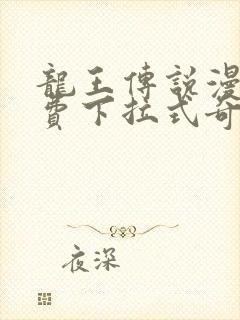 龍王傳說漫
費下拉式奇
夜深